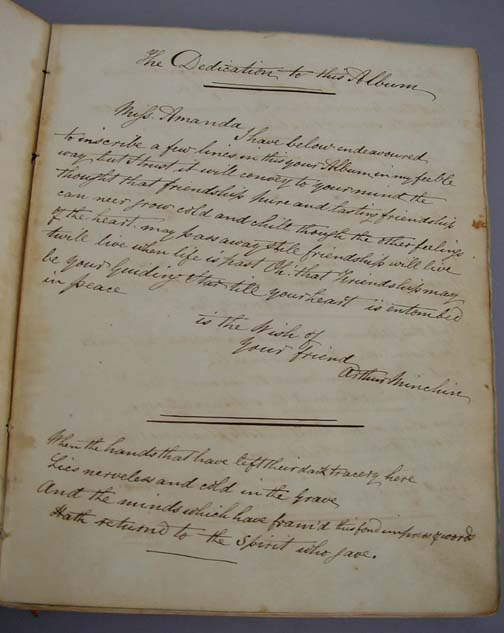 The Dedication to this Album
Miss. Amanda
I have below endeavoured
to inscribe a few lines in this your Album in my feeble
way, but I trust it will convey to your mind the
thought that friendship pure and lasting friendship
can neer grow cold and chill though the other feelings
of the heart may pass away still friendship will live
twill live when life is past Oh. that Friendship may
be your Guiding Star till your heart is entombed
in peace
is the Wish of
Your friend
Arthur Minchin
When the hands that have left their dark tracery here
Lies nerveless and cold in the Grave
And the minds which have fram'd this fond impress & words
Hath returnd to the Spirit who gave.